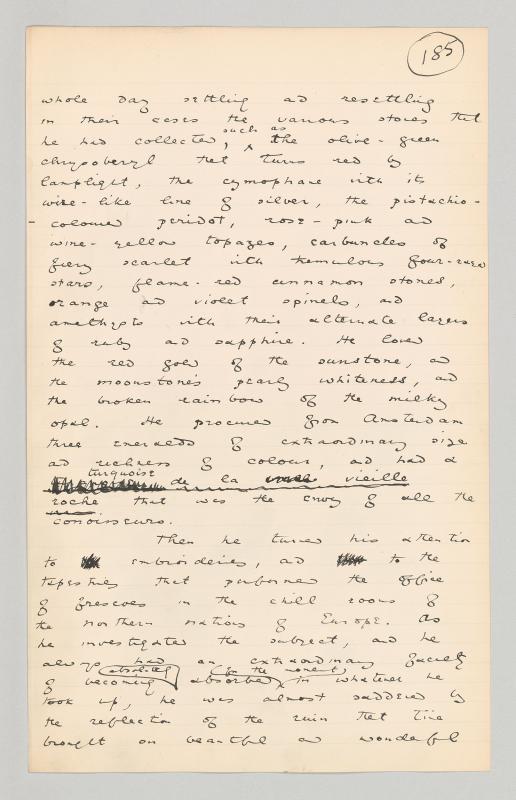 185
whole day settling and resettling
in their cases the various stones that
he had collected, such as the olive-green
chrysoberyl that turns red by
lamplight, the cymophane with its
wire-like line of silver, the pistachio-
coloured peridot, rose-pink and
wine-yellow topazes, carbuncles of
fiery scarlet with tremulous four-rayed
stars, flame-red cinnamon stones,
orange and violet spinels, and
amethysts with their alternate layers
of ruby and sapphire. He loved
the red gold of the sunstone, and
the moonstone's pearly whiteness, and
the broken rainbow of the milky
opal. He procured from Amsterdam
three emeralds of extraordinary size
and richness of colour, and had a
turquoise de la vieille
roche that was the envy of all the
connoisseurs.
Then he turned his attention
to embroideries, and to the
tapestries that performed the office
of frescoes in the chill rooms of
the northern nations of Europe. As
he investigated the subject, and he
always had an extraordinary faculty
of becoming absolutely absorbed for the moment in whatever he
took up, he was almost saddened by
the reflection of the ruin that time
brought on beautiful and wonderful